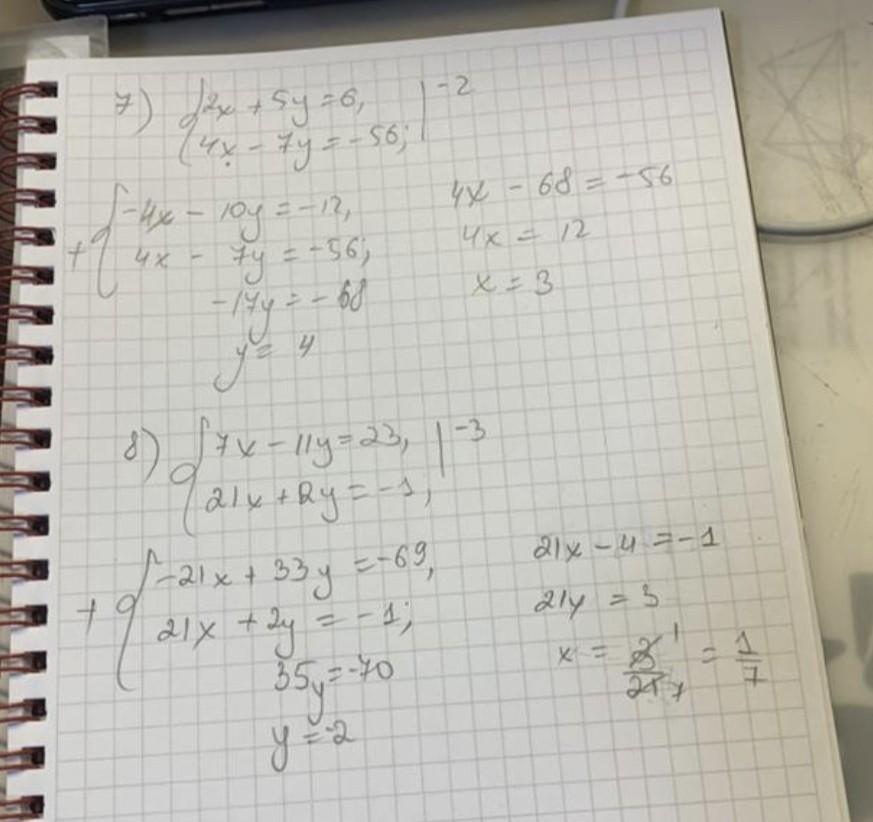 7) {2x + 5y = 6, | -2
4x - 7y = -56;
+ {-4x - 10y = -12,
4x - 7y = -56;
-17y = -68
y = 4
4x - 68 = -56
4x = 12
x = 3
8) {7x - 11y = 23, | -3
21x + 2y = -1;
+ {-21x + 33y = -69,
21x + 2y = -1;
35y = -70
y = -2
21x - 4 = -1
21y = 3
x = 3/21 = 1/7